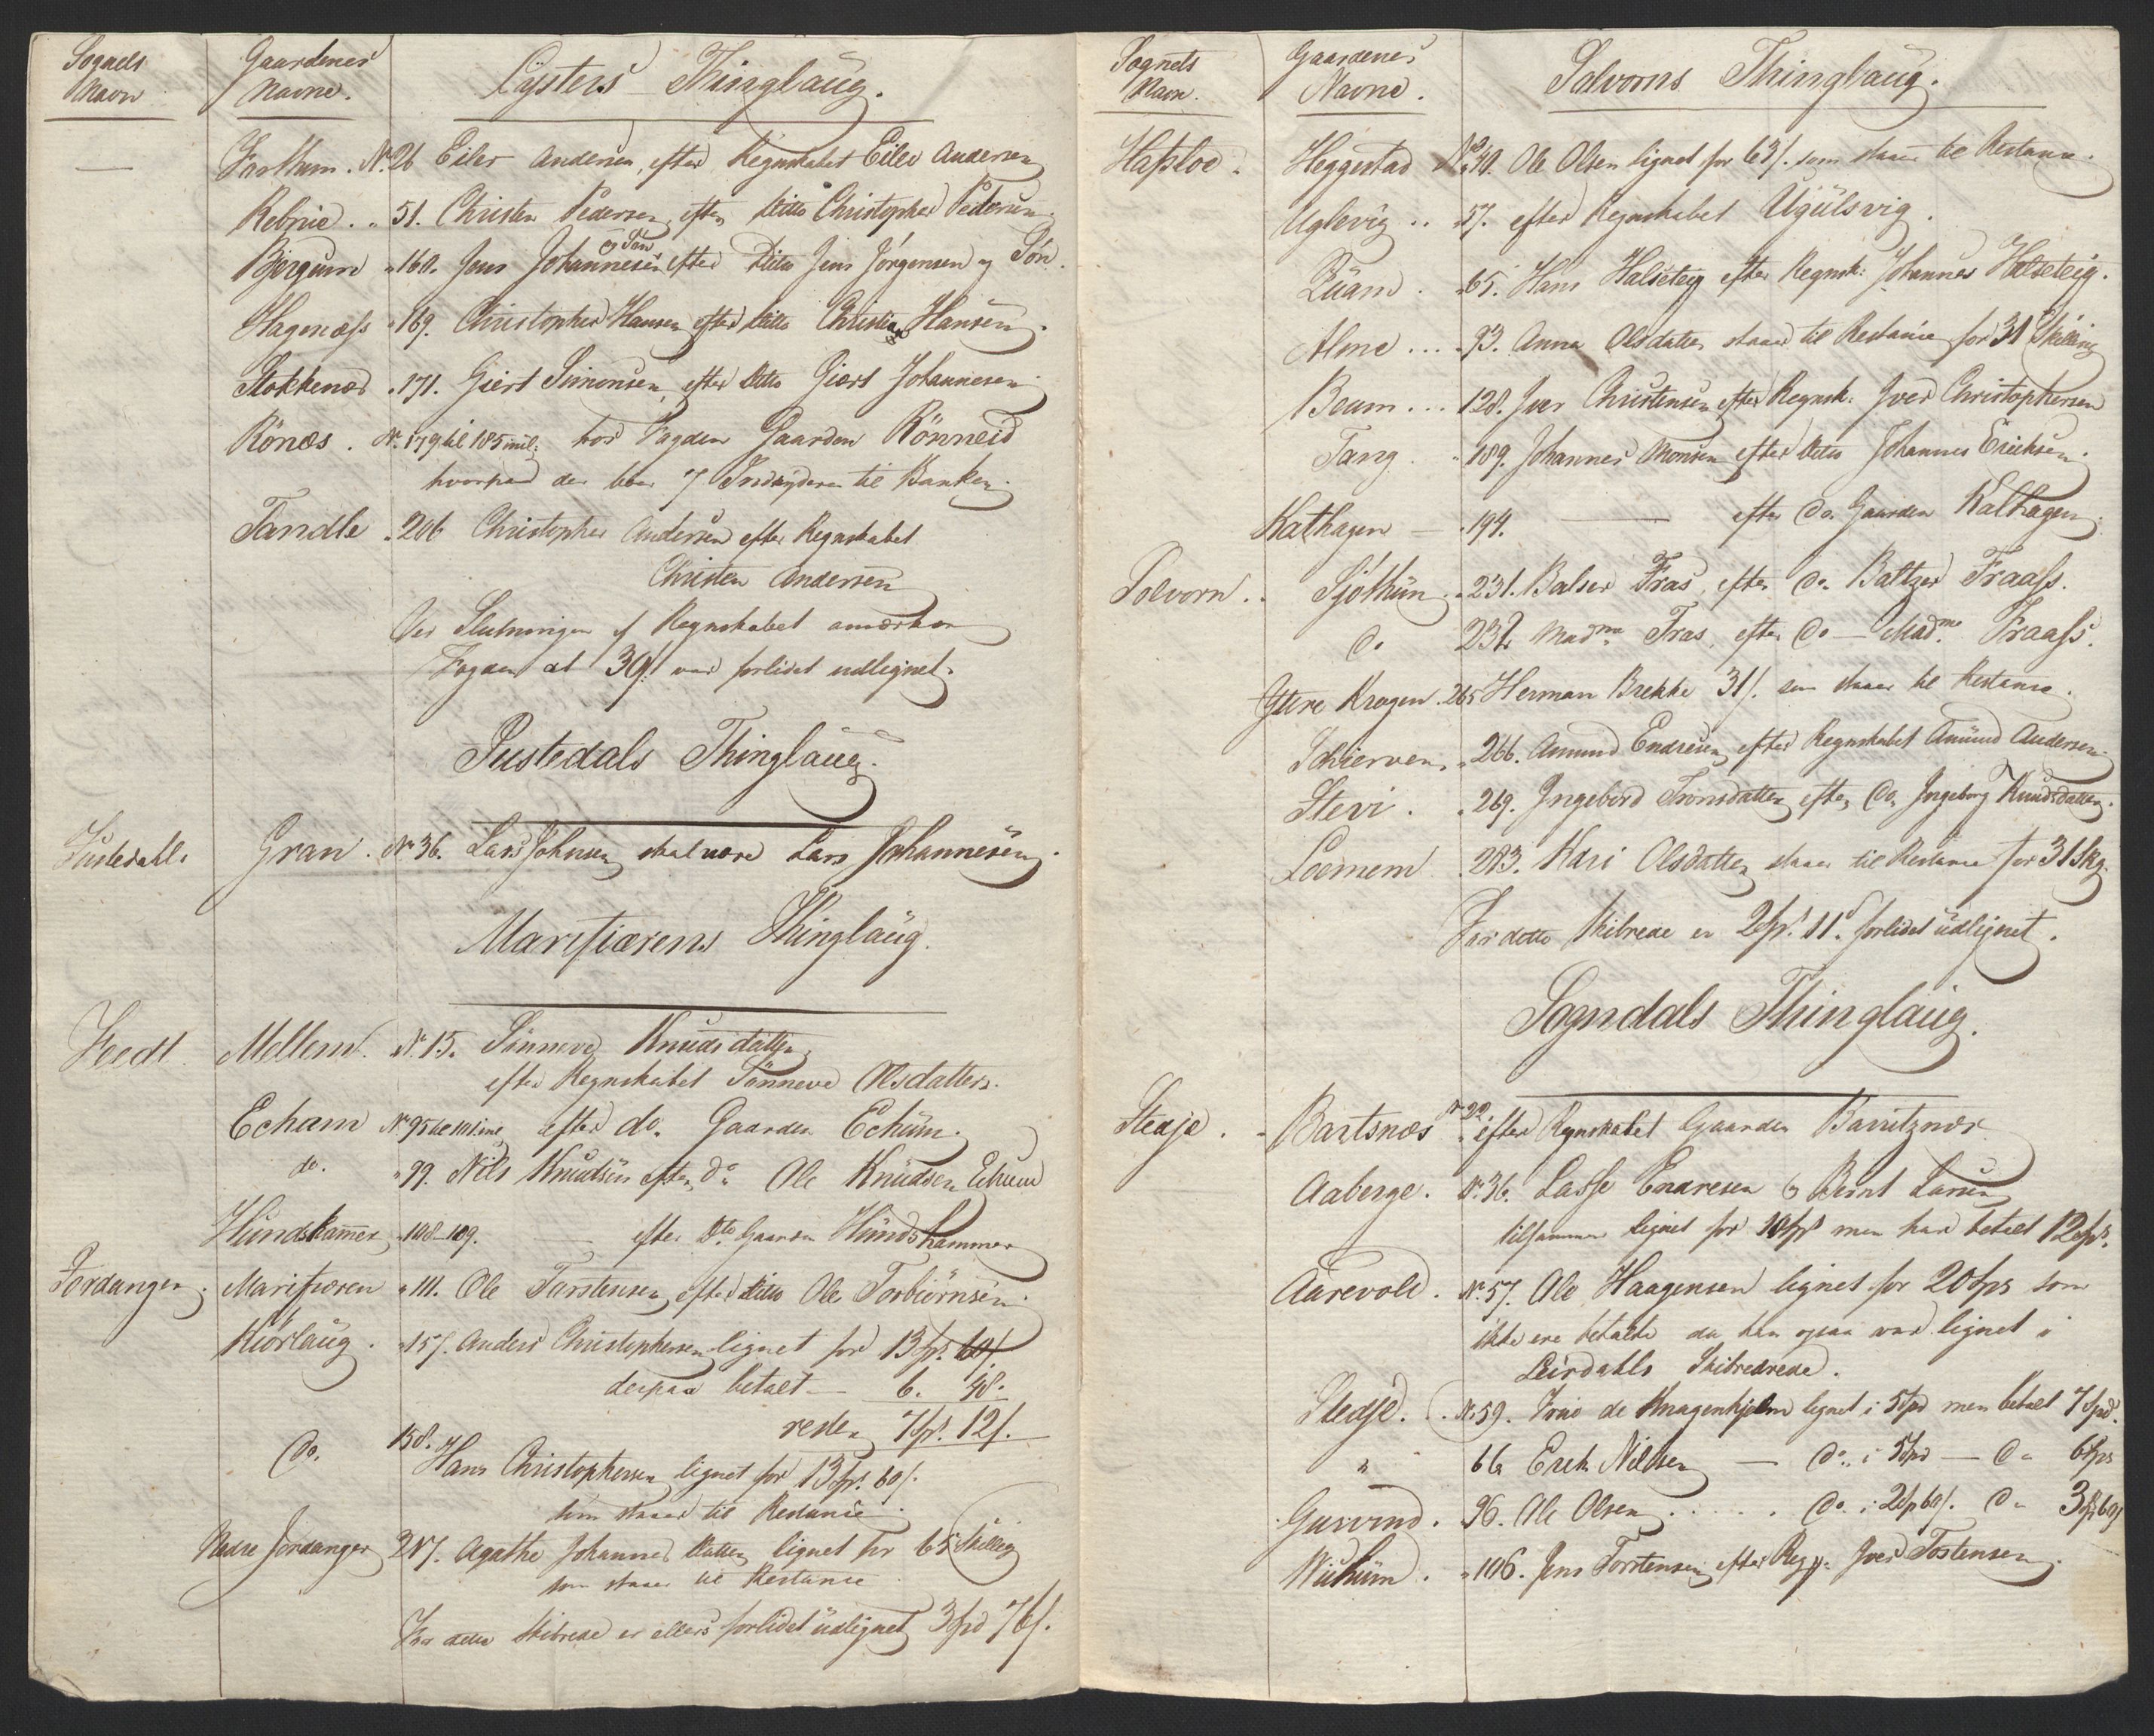 Sognets Navn
Gaardenes Navne.
Lysters Thinglaug.
— Farthum. No. 26 Eiler Andersen, efter Regnskabet Eiled Andersen
Rebnie. „ 51. Christen Pedersen, efter Ditto Christopher Pedersen
Bjergum „ 160. Jens Johannesen og Søn efter Ditto Jens Jörgensen og Sön.
Hagenæss „ 169. Christopher Hansen efter ditto Christen Hansen.
Stokkenæs „ 171. Giert Simonsen, efter ditto Giert Johannesen.
Rönæs. No. 179 til 185 incl: har Fogden Gaarden Rönneid
hvorpaa der boer 7 Indskydere til Banken.
Tandle „ 206 Christopher Andersen efter Regnskabet
Christen Andersen
Ved Slutningen af Regnskabet anmærker
Fogden at 39/ var forlidet udlignet.
Justedals Thinglaug.
Justedahls Gran. No. 36. Lars Johnsen skal være Lars Johannesen.
Marifiærens Thinglaug.
Feedt Mellem. No. 15. Sönneve Knudsdatter
efter Regnskabet Sönneve Olsdatter.
Echam No. 95 til 101 inc. efter do. Gaarden Echum.
do. „ 99. Nils Knudsen efter do. Ole Knudsen Echum
Hundskammer „ 108-109. — efter Dto Gaarden Hundshammer
Jordanger. Marifiæren „ 111. Ole Torstensen, efter ditto Ole Torbiörnsen.
Kiörlaug. „ 157. Anders Christophersen lignet for 13 spd. 60/
derpaa betalt — 6. 48.
rester 7 spd. 12/.
Do. 158. Hans Christophersen lignet for 13 spd. 60/.
som staaer til Restance.
Nedre Jordanger 217. Agathe Johannes datter lignet for 65 Skilling
som staaer til Restance
For dette Skibrede er ellers forlidet udlignet 3 spd 76/.
Sognets Navn.
Gaardenes Navne.
Solvorns Thinglaug.
Hafsloe. Heggestad No. 40. Ole Olsen lignet for 63/. som staaer til Restance.
Uglevig .. „ 57. efter Regnskabet Ugülsvig.
Quam. „ 65. Hans Halseteig efter Regnsk: Johannes Halseteig.
Alme ... „ 93. Anna Olsdatter staaer til Restance for 31 Skilling
Beum ... 128. Iver Christensen efter Regnsk: Iver Christophersen
Tang. „ 189. Johannes Monsen efter ditto Johannes Erichsen.
Kathagen — „ 194. — efter Do. Gaarden Kalhagen.
Solvorn. Sjöthun „ 231. Balser Fras, efter Do. Baltzer Fraass.
Do 232. Madme Fras, efter Do — Madme Fraass.
Ytere Krogen. 265 Herman Brekke 31/. som staaer til Restance.
Schierven. „ 266. Amund Endresen efter Regnskabet Amund Andersen.
Stevi. „ 269. Ingebord Tronsdatter efter Do. Ingeborg Knudsdatter.
Loemem 283. Kari Olsdatter staaer til Restance for 31 Skg.
For dette Skibrede er 2 spd. 11/. forlidet udlignet.
Sogndals Thinglaug.
Stedje. Bartsnæs No 22 efter Regnskabet Gaarden Barritznæs
Aaberge. No. 36. Lasse Endresen og Bernt Larsen
tilsammen lignet for 10 spd men har betalt 12 spd.
Aarevold. No. 57. Ole Haagensen lignet for 20 spd som
ikke ere betalte da han ogsaa var lignet i
Leirdahls Skibredrede.
Stedje. No. 59. Frue de Knagenhjelm lignet i 5 spd men betalt 7 spd.
„ 66 Erik Nielsen — Do. i 5 spd — Do 6 spd
Gurvind. 96. Ole Olsen ..... Do. i 2 spd 60/. Do 3 spd 60/
Wichum. „ 106. Jens Torstensen efter Reg: Iver Tostensen.